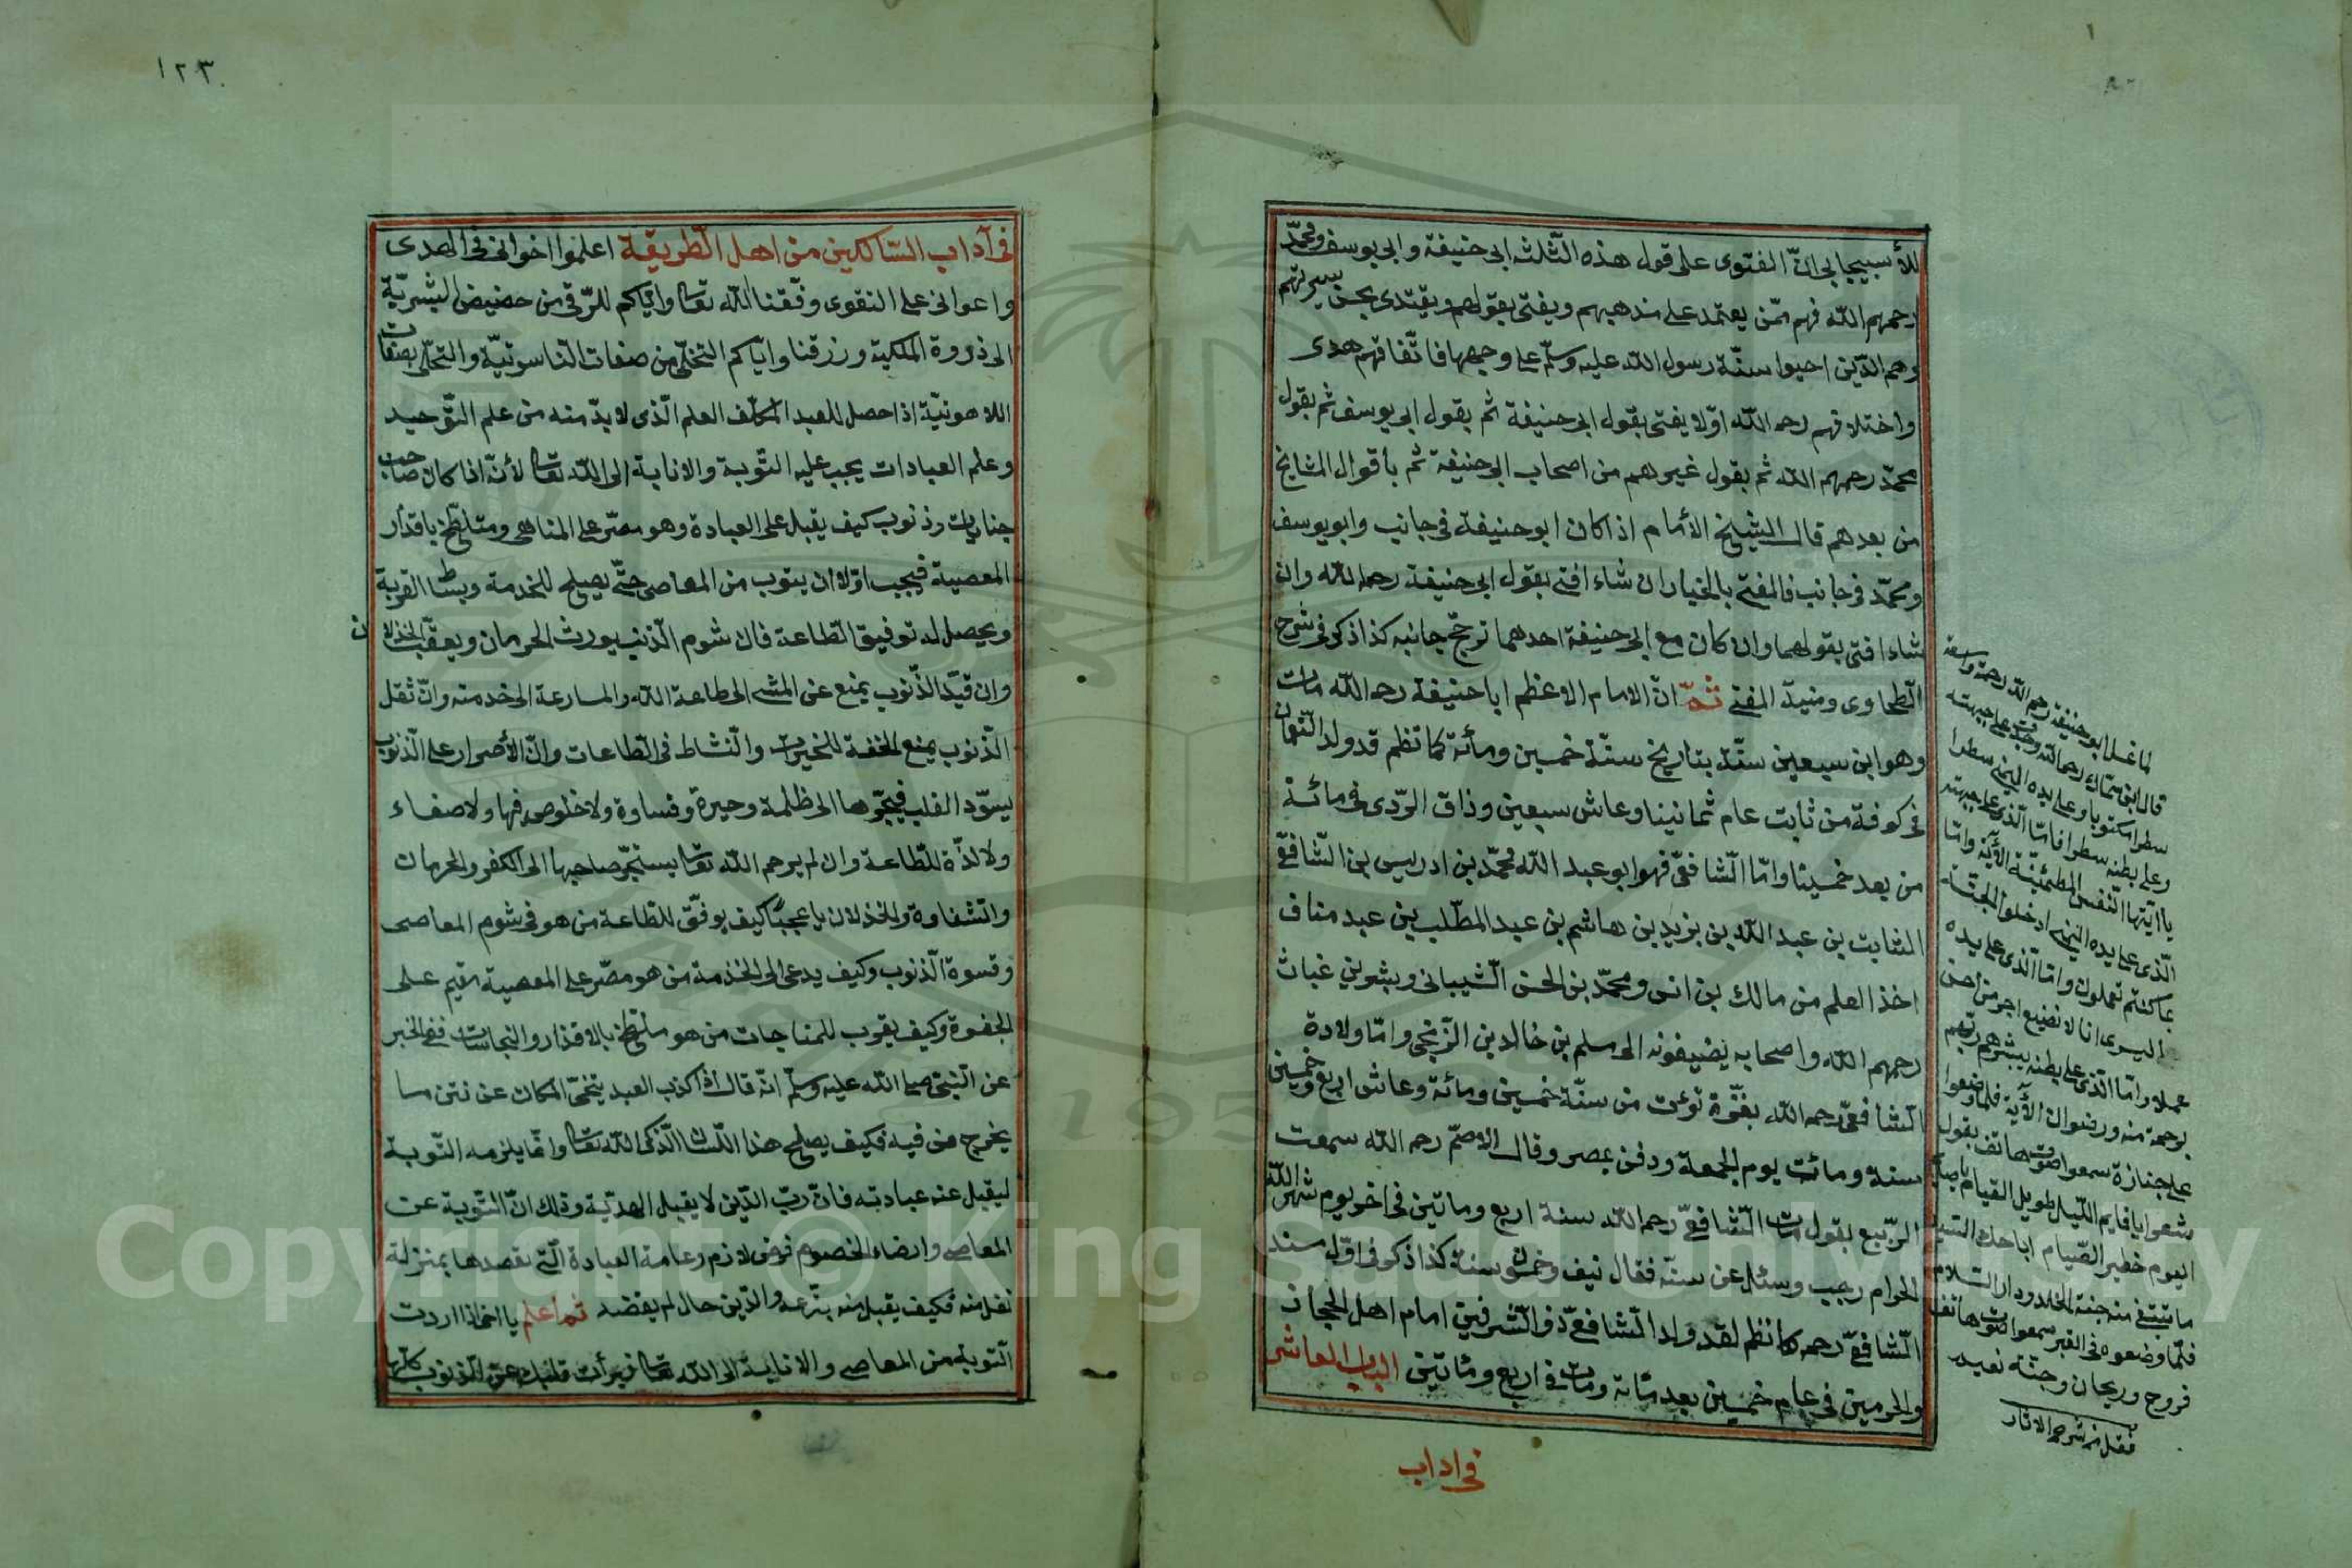 للأسبيجابى انّ الفتوى على قول هذه الثّلثه ابى حنيفة وابى يوسف ومحمّد
رحمهم اللّه فهم ممّن يعتمد على مذهبهم ويفتى بقولهم ويقتدى بحسن سيرتهم
وهم الّذين احيوا سنّة رسول اللّه عليه وسلّم على وجهها فاتّفاقهم هدى
واختلافهم رحمه اللّه اوّلا يفتى بقول ابى حنيفة ثم بقول ابى يوسف ثم بقول
محمّد رحمهم اللّه ثم بقول غيرهم من اصحاب ابى حنيفة ثم بأقوال المشايخ
من بعدهم قال الشيخ الأمام اذا كان ابو حنيفة فى جانب وابو يوسف
ومحمّد فى جانب فالمفتى بالخيار ان شاء افتى بقول ابى حنيفة رحمه اللّه وان
شاء افتى بقولهما وان كان مع ابى حنيفة احدهما ترجّح جانبه كذا ذكر فى شرح
الطّحاوى ومنية المفتى ثمّ انّ الامام الاعظم ابا حنيفة رحمه اللّه مات
وهو ابن سبعين سنّة بتاريخ سنّة خمسين ومأئة كما نظم قد ولد النّعمان
فى كوفة من ثابت عام ثمانينا وعاش سبعين وذاق الرّدى فى مائة
من بعد خمسينا وامّا الشّافعىّ فهو ابو عبد اللّه محمّد بن ادريس بن الشّافعىّ
الثابت بن عبد اللّه بن يزيد بن هاشم بن عبد المطّلب بن عبد مناف
اخذ العلم من مالك بن انس ومحمّد بن الحسن الشّيبانى وبشر بن غياث
رحمهم اللّه واصحابه يضيفونه الى مسلم بن خالد بن الزّنجى وامّا ولادة
الشّافعىّ رحمه اللّه بغزّة توعت من سنّة خمسين ومائة وعاش اربع وخمسين
سنة ومائت يوم الجمعة ودفن بمصر وقال الاصمّ رحمه اللّه سمعت
الرّبيع بقول مات الشّافعىّ رحمه اللّه سنة اربع وماتين فى اخر يوم شهر اللّه
الحرام رجب وسئل عن سنّه فقال نيف وخمسون سنة كذا ذكر فى اوّل مسند
الشّافعىّ رحمه كما نظم لقد ولد الشّافعىّ ذو الشّرفين امام اهل الحجاز
والحرمين فى عام خمسين بعد مائة ومات فى اربع ومائتين الباب العاشر
فى اداب
لما غسل ابو حنيفة رحمه اللّه رحمة واسعة
قال ابن سمّاك رحمه اللّه وجدت على جبهته
سطرا مكتوبا وعلى يده اليمنى سطرا
وعلى بطنه سطرا فامّا الّذى على جبهته
يا ايّتها النّفس المطمئنّة الأية وامّا
الّذى على يده اليمنى ادخلوا الجنّة
بما كنتم تعملون وامّا الّذى على يده
اليسرى انا لا نضيع اجر من احسن
عملا وامّا الّذى على بطنه يبشّرهم ربّهم
برحمة منه ورضوان الأية فلما وضعوا
على جنازة سمعوا صوت هاتف يقول
شعر ايا قايم اللّيل طويل القيام
اليوم خطير الصّيام اباحك السّيّد
ما تبتغى من جنة الخلد ودار السّلام
فلمّا وضعوه فى القبر سمعوا صوت هاتف
فروح وريحان وجنّة نعيم
نقل من شرح الاثار
١٢٣
فى آداب السّالكين من اهل الطّريقة اعلموا اخوانى فى الهدى
واعوانى على التقوى وفّقنا اللّه تعالى وايّاكم للرّقى من حضيض البشريّة
الى ذروة الملكية ورزقنا وايّاكم التخلّى من صفات النّاسوتيّة والتحلّى بصفات
اللاهوتيّة اذا حصل للعبد المكلّف العلم الّذى لا بدّ منه من علم التّوحيد
وعلم العبادات يجب عليه التّوبة والانابة الى اللّه تعالى لأنّه اذا كان صاحب
جنايات وذنوب كيف يقبل على العبادة وهو مصرّ على المناهى ومتلطّخ باقذار
المعصية فيجب اوّلا ان يتوب من المعاصى حتّى يصلح للخدمة وبساط القربة
ويحصل له توفيق الطّاعة فان شوم الّذنب يورث الحرمان ويعقّب الخذلان
وان قيد الذّنوب يمنع عن المشى الى طاعة اللّه والمسارعة الى خدمته وانّ ثقل
الذّنوب يمنع الخفة للخيرات والنّشاط فى الطّاعات وانّ الأصرار على الّذنوب
يسوّد القلب فيجرّها الى ظلمة وحيرة وقساوة ولا خلوص فيها ولا صفاء
ولا لذّة للطّاعة وان لم يرحم اللّه تعالى يستجرّ صاحبها الى الكفر والحرمان
والشّقاوة والخذلان يا عجبًا كيف يوفّق للطّاعة من هو فى شوم المعاصى
وقسوة الّذنوب وكيف يدعى الى الخذمة من هو مصّر على المعصية مقيم على
الجفوة وكيف يقرب للمناجات من هو ملطّخ بالاقذار والنجاسات ففى الخبر
عن النّبىّ صلى اللّه عليه وسلّم انّه قال اذا كذب العبد يتنحّى الملكان عن نتن ما
يخرج من فيه فكيف يصلح هذا اللّسان لذكر اللّه تعالى وامّا يلزمه التّوبة
ليقبل عنه عبادته فانّ ربّ الدّين لا يقبل الهديّة وذلك انّ التّوبة عن
المعاصى وارضاء الخصوم فرض لازم وعامة العبادة الّتى يقصدها بمنزلة
نفل منه فكيف يقبل منه تبرّعه والدّين حال لم يقضه ثم أعلم يا اخى اذا اردت
التوبة من المعاصى والانابة الى اللّه تعالى فبرأت قلبك عن الذنوب كلّها
Copyright © King Saud University
1957